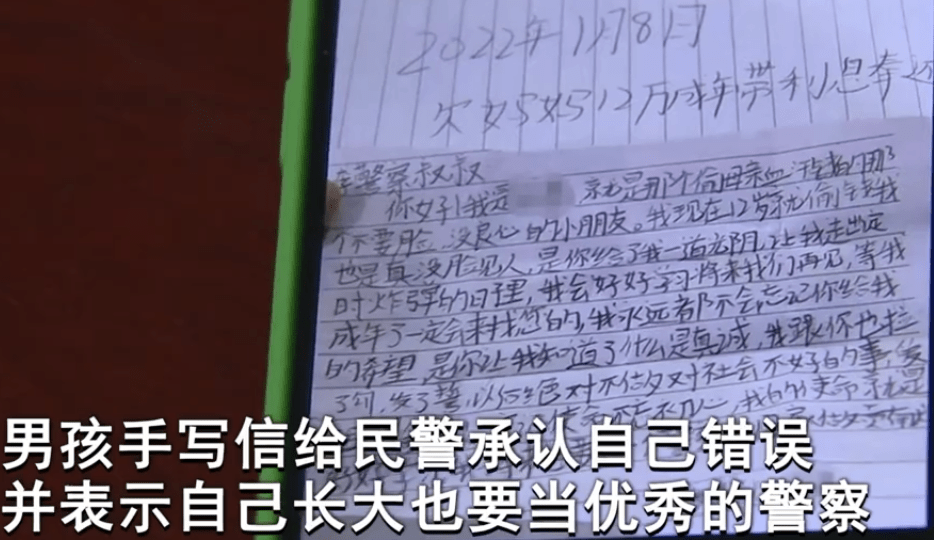 2022年11月8日
欠妈妈12万成年带利息奉还
警察叔叔
你好!我是 就是那个偷母亲血汗钱
不要脸没良心的小朋友。我现在12岁就偷钱我
也是真没脸见人,是你给了我一道光阴,让我走出定
时炸弹的日理,我会好好学习将来我们再见,等我
成年了一定会来找您的,我永远都不会忘记你给我
的希望是你让我知道了什么是真诚,我跟你也拉
了勾,发了誓以后绝对不做对社会不好的事
我的使命就是
男孩手写信给民警承认自己错误
并表示自己长大也要当优秀的警察